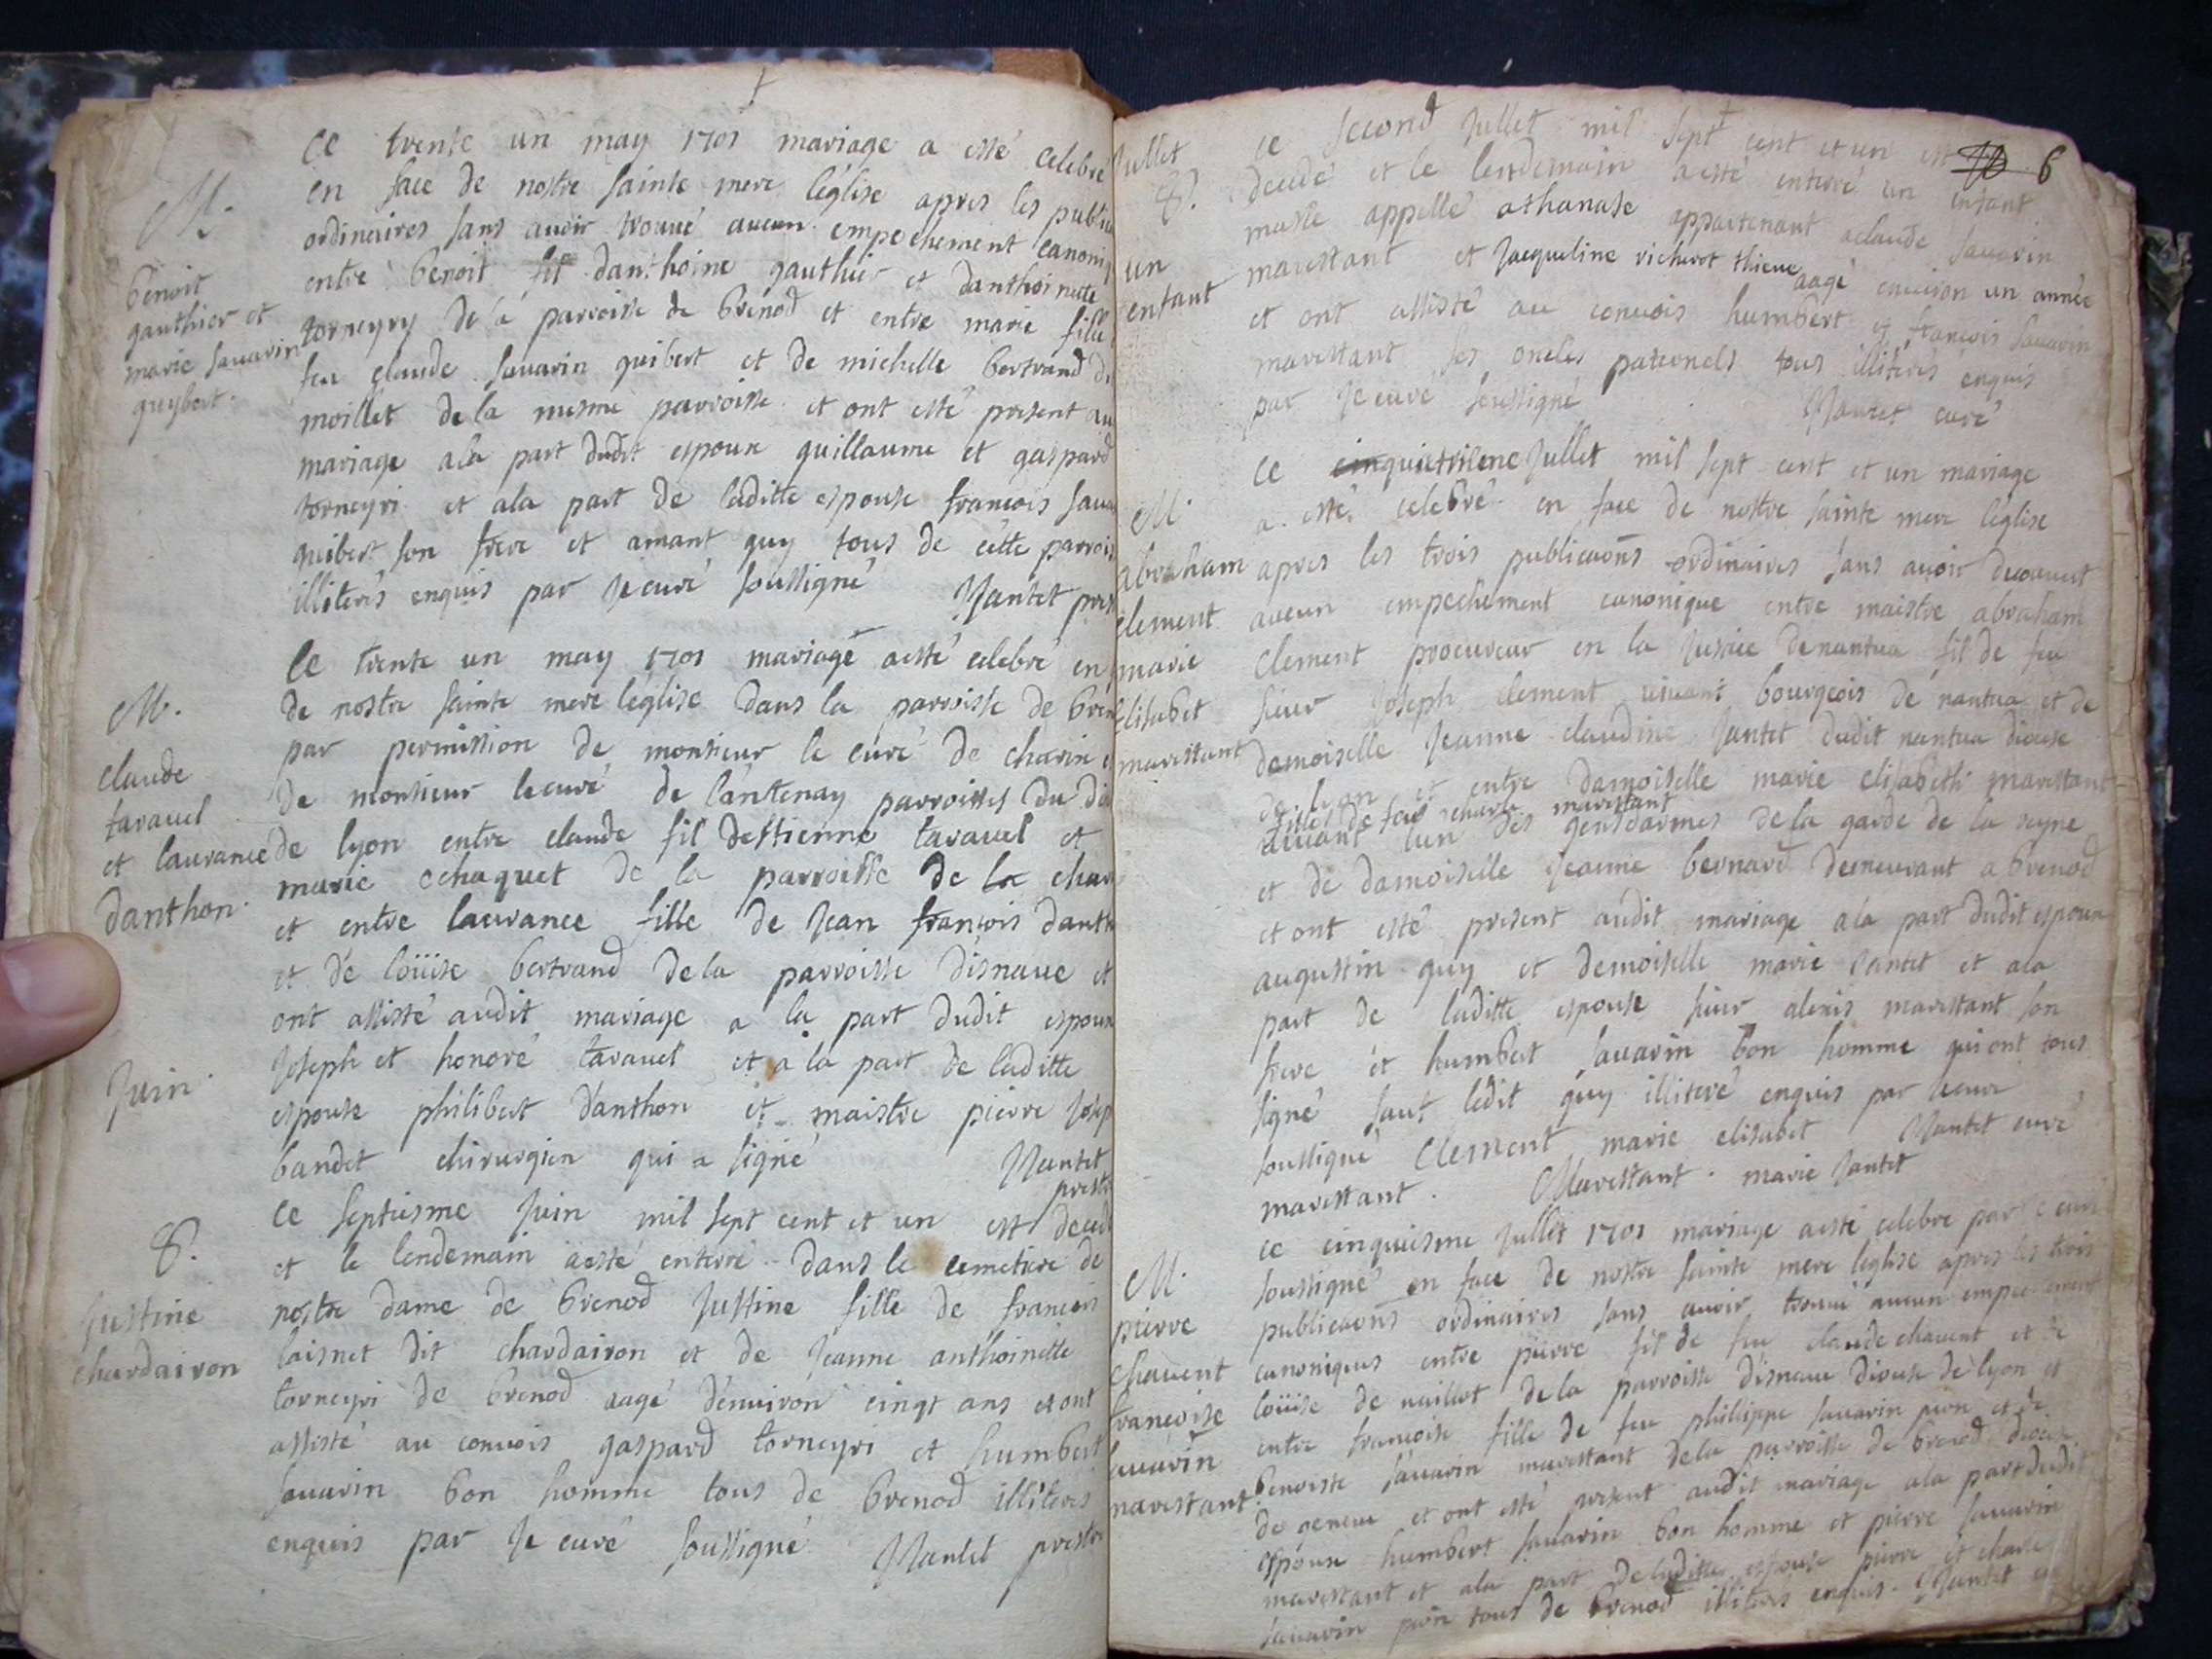 M.
benoit
gauthier et
marie savarin
guybert.
ce trente un may 1701 mariage a esté celebré
en face de nostre sainte mere léglise apres les public
ordinaires sans avoir trouvé aucun empechement canoniq
entre benoit fil danthoine gauthier et danthoinette
torneyry de la parroisse de brenod et entre marie fille
feu claude savarin guibert et de michelle bertrand d
moillet de la mesme parroisse et ont esté present au
mariage ala part dudit espoux guillaume et gaspard
torneyri et ala part de laditte espouse francois sava
guibert son frere et amant guy tous de cette parrois
illiterés enquis par je curé soussigné Jantet pres
M.
claude
taravel
et laurance
danthon.
ce trente un may 1701 mariage aesté celebré en
de nostre sainte mere léglise dans la parroisse de bren
par permission de monsieur le curé de chavin e
de monsieur lecuré de lantenay parroisses du dio
de lyon entre claude fil destienne taravel et
marie echaquet de la parroisse de la chav
et entre laurance fille de jean françois danth
et de loüise bertrand dela parroisse disnave et
ont assisté audit mariage a la part dudit espoux
joseph et honoré taravel et a la part de laditte
espouse philibert danthon et maistre pierre josep
bandet chirurgien qui a signé Jantet
prestr
Juin.
8.
justine
chardairon
ce septiesme juin mil sept cent et un est deced
et le lendemain aesté enterré dans le cemetiere de
nostre dame de brenod justine fille de francois
laisnet dit chardairon et de jeanne anthoinette
torneyri de brenod aagé denviron cingt ans et ont
assisté au convois gaspard torneyri et humbert
savarin bon homme tous de brenod illiterés
enquis par je curé soussigné Jantet prestre
6
jullet
8.
un
enfant
ce second jullet mil sept cent et un est
decedé et le lendemain aesté enterré un enfant
masle appellé athanase appartenant aclaude savarin
marestant et jacqueline richerot thieue aagé environ un année
et ont assisté au convois humbert et françois savarin
marestant ses oncles paternels tous illiterés enquis
par je curé soussigné Jantet curé
M.
abraham
clement
marie
elisabet
marestant
ce jullet mil sept cent et un mariage
a esté celebré en face de nostre sainte mere léglise
apres les trois publicaons ordinaires sans avoir decouvert
aucun empechement canonique entre maistre abraham
clement procureur en la justice denantua fil de feu
sieur joseph clement vivant bourgeois de nantua et de
demoiselle jeanne claudine jantet dudit nantua diocese
de lyon et entre damoiselle marie elisabeth marestant
fille de feu charle marestant
vivant lun des gensdarmes dela garde de la reyne
et de damoiselle jeanne bernard demeurant a brenod
et ont esté present audit mariage ala part dudit espoux
augustin guy et demoiselle marie jantet et ala
part de laditte espouse sieur alexis marestant son
frere et humbert savarin bon homme qui ont tous
signé sauf ledit guy illiteré enquis par jecuré
soussigné Clement marie elisabet Jantet curé
marestant. Marestant. marie jantet
M.
pierre
chavent
françoise
savarin
marestant
ce cinquiesme jullet 1701 mariage aesté celebre par je curé
soussigné en face de nostre sainte mere léglise apres les trois
publicaons ordinaires sans avoir trouvé aucun empechement
canoniques entre pierre fil de feu claude chavent et de
loüise de naillot dela parroisse disnave diocese de lyon et
entre francoise fille de feu philippe savarin pion et de
benoiste savarin marestant dela parroisse de brenod diocese
de geneve et ont esté present audit mariage ala part dudit
espoux humbert savarin bon homme et pierre savarin
marestant et ala part de laditte espouse pierre et charle
savarin pion tous de brenod illiterés enquis. Jantet